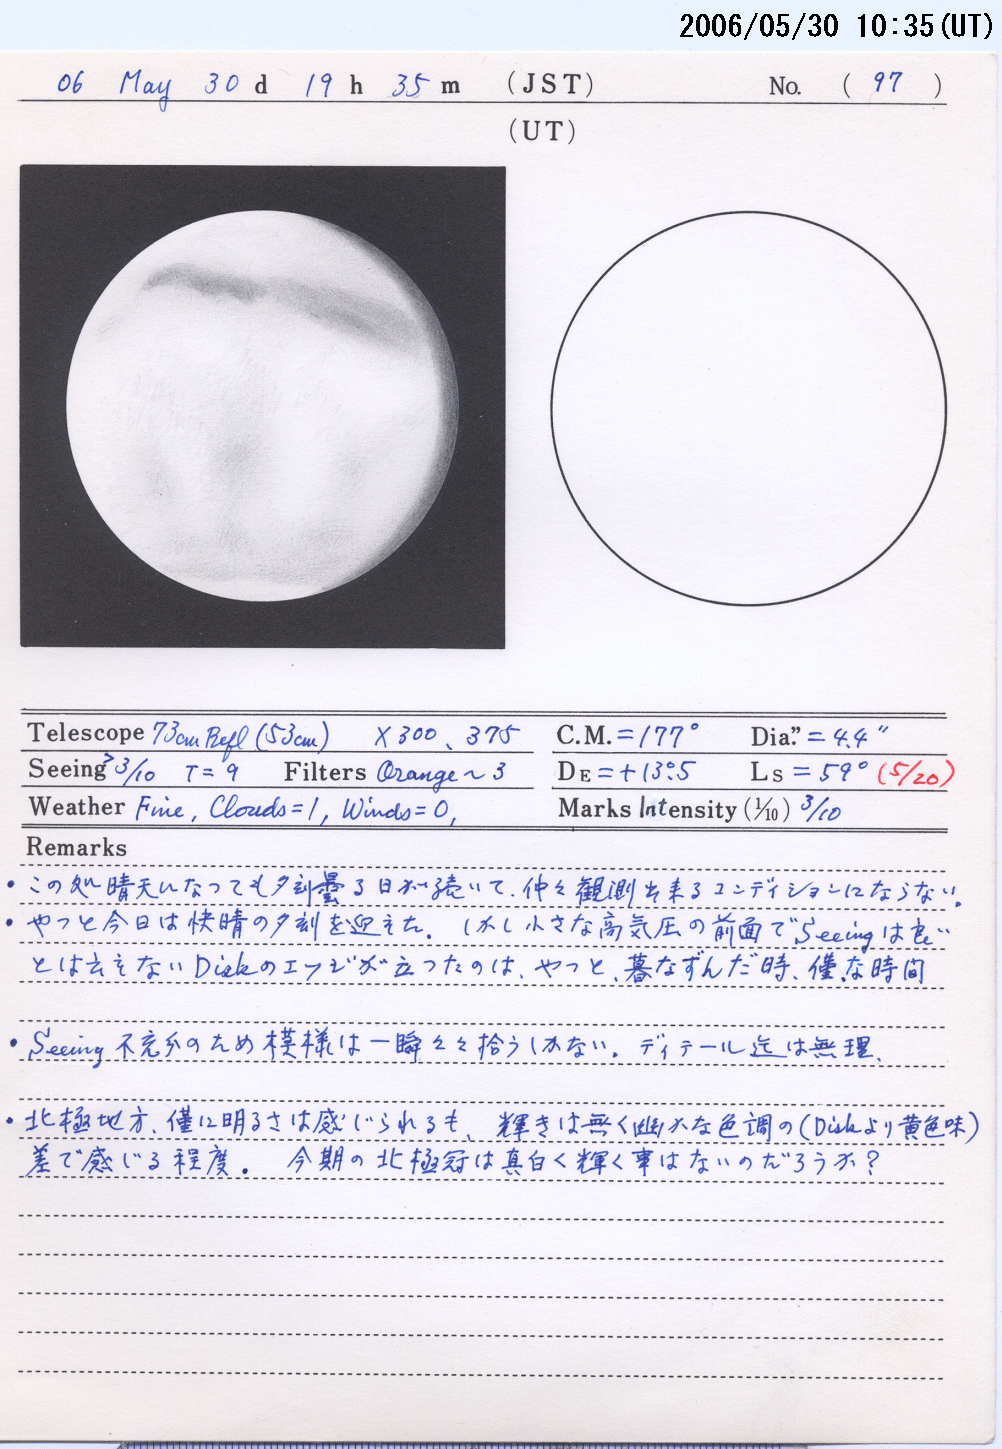 2006/05/30 10:35(UT)
06 May 30 d 19 h 35 m (JST) No. ( 97 )
(UT)
Telescope 73cm Refl (53cm) X300、375 C.M. = 177° Dia." = 4.4"
Seeing 3/10 T = 9 Filters Orange ~ 3 DE = +13°.5 Ls = 59° (5/20)
Weather Fine, Clouds=1, Winds=0, Marks Intensity (1/10) 3/10
Remarks
・この処晴天になっても夕刻曇る日が続いて、仲々観測出来るコンディションにならない。
・やっと今日は快晴の夕刻を迎えた。しかし小さな高気圧の前面でSeeingは良い
とは云えないDiskのエッジが立ったのは、やっと、暮なずんだ時、僅な時間
・Seeing不充分のため模様は一瞬々々拾うしかない。ディテール迄は無理、
・北極地方、僅に明るさは感じられるも、輝きは無く幽かな色調の(Diskより黄色味)
差で感じる程度。 今期の北極冠は真白く輝く事はないのだろうか?